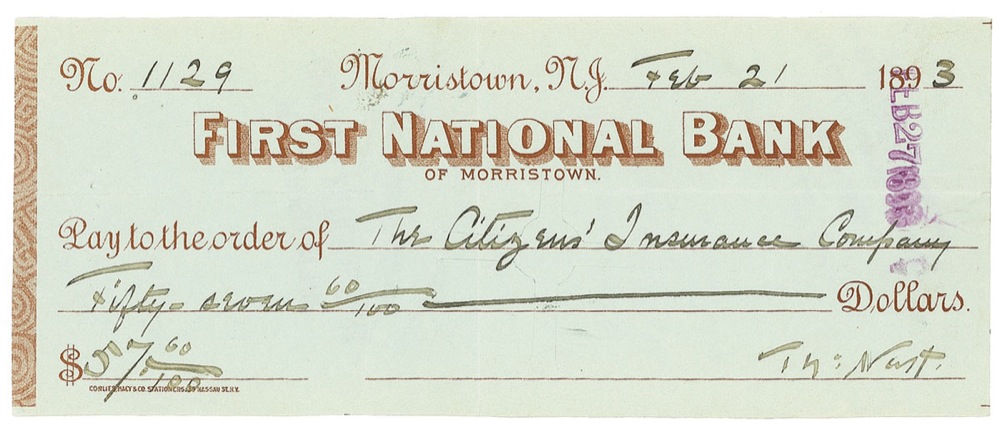 No. 1129 Morristown, N.J. Feb 21 1893
FIRST NATIONAL BANK
OF MORRISTOWN.
FEB 27 1893
Pay to the order of The Citizens' Insurance Company
Fifty-seven 60/100 Dollars.
$57 60/100
Th: Nast.
CORLIES, MACY & CO. STATIONERS, 39 NASSAU ST. N.Y.